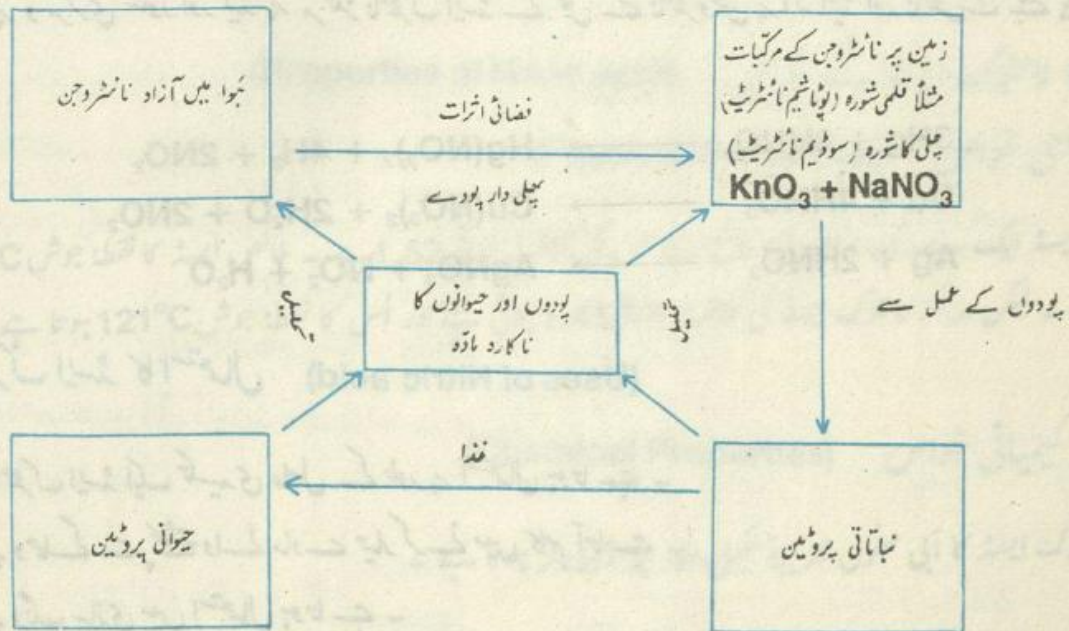 ہَوا میں آزاد نائٹروجن
فضائی اثرات
پھلی دار پودے
زمین پر نائٹروجن کے مرکبات
مثلاً قلمی شورہ (پوٹاشیم نائٹریٹ)
چلی کا شورہ (سوڈیم نائٹریٹ)
KnO₃ + NaNO₃
پودوں کے عمل سے
پودوں اور حیوانوں کا
ناکارہ مادّہ
تحلیل
تحلیل
غذا
حیوانی پروٹین
نباتاتی پروٹین